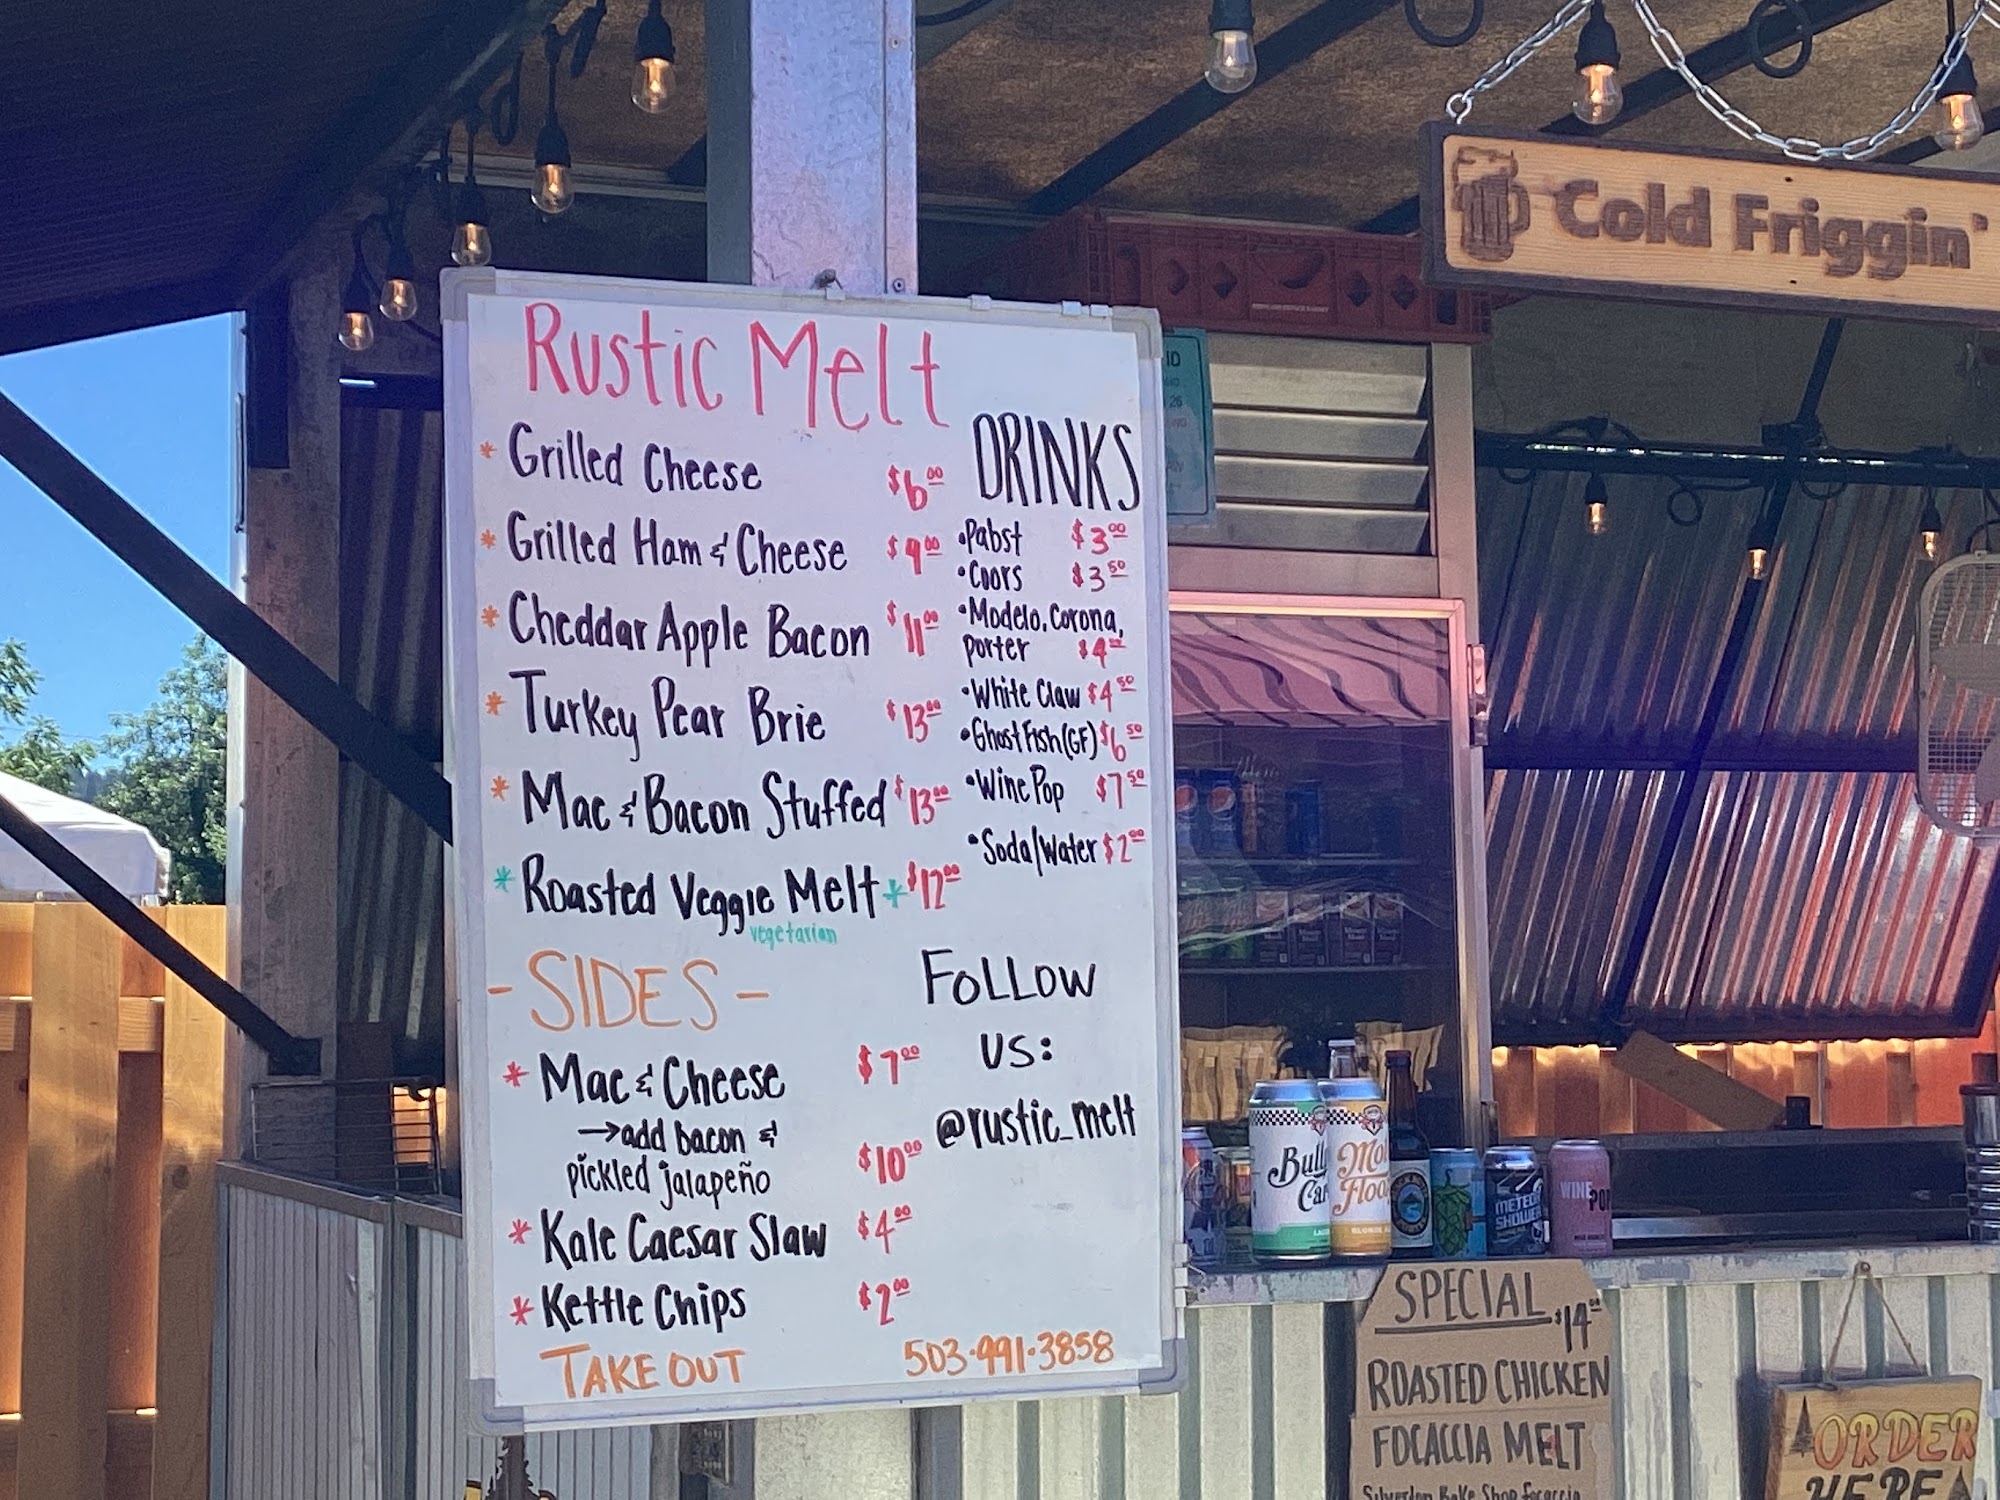 Rustic Melt
* Grilled Cheese $6.00
* Grilled Ham & Cheese $9.00
* Cheddar Apple Bacon $11.00
* Turkey Pear Brie $13.00
* Mac & Bacon Stuffed $13.00
* Roasted Veggie Melt * $12.00
vegetarian
- SIDES -
* Mac & Cheese $7.00
→ add bacon &
pickled jalapeño $10.00
* Kale Caesar Slaw $4.00
* Kettle Chips $2.00
TAKE OUT 503·991·3858
DRINKS
• Pabst $3.00
• Coors $3.50
• Modelo, Corona,
porter $4.00
• White Claw $4.50
• Ghost Fish (GF) $6.50
• Wine Pop $7.50
• Soda/Water $2.00
FOLLOW
US:
@rustic_melt
Cold Friggin'
ID
26
METEOR
SHOWER
WINE POP
SPECIAL $14.00
ROASTED CHICKEN
FOCACCIA MELT
Silverton Bake Shop focaccia
ORDER
HERE